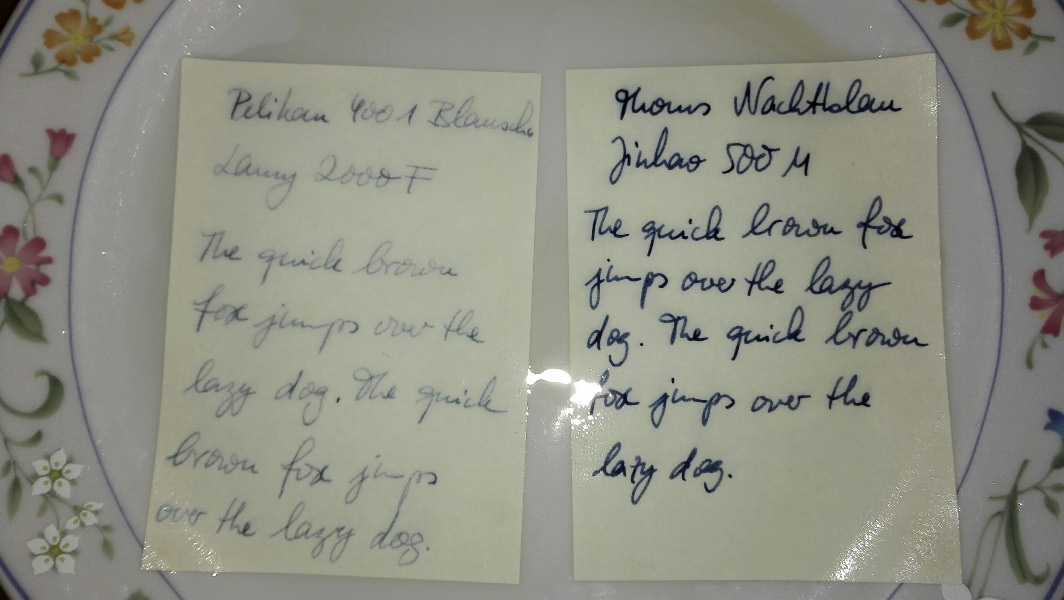 Pelikan 4001 Blausch
Lamy 2000 F
The quick brown
fox jumps over the
lazy dog. The quick
brown fox jumps
over the lazy dog.
Thoms Nachtblau
Jinhao 500 M
The quick brown fox
jumps over the lazy
dog. The quick brown
fox jumps over the
lazy dog.